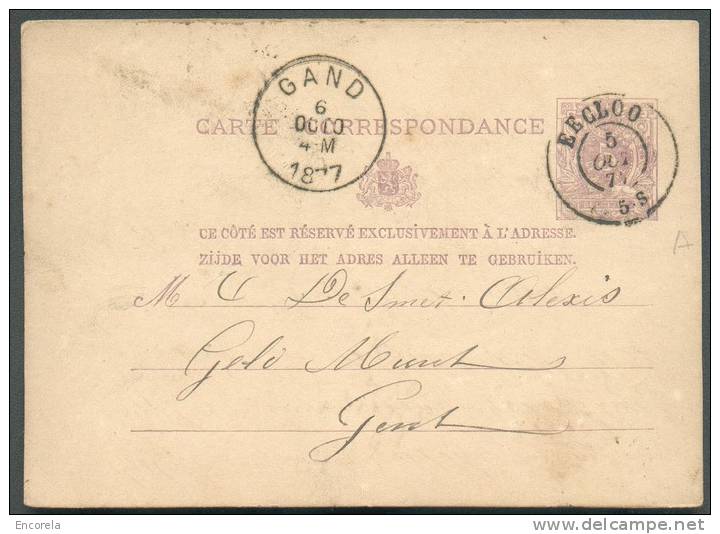 GAND
6
OCTO
4-M
1877
EECLOO
5
OCT
7
5-S
CARTE CORRESPONDANCE
CE CÔTÉ EST RÉSERVÉ EXCLUSIVEMENT À L'ADRESSE.
ZIJDE VOOR HET ADRES ALLEEN TE GEBRUIKEN.
A
M De Smet. Alexis
Geld Munt
Gent
Encorela
delcampe.net